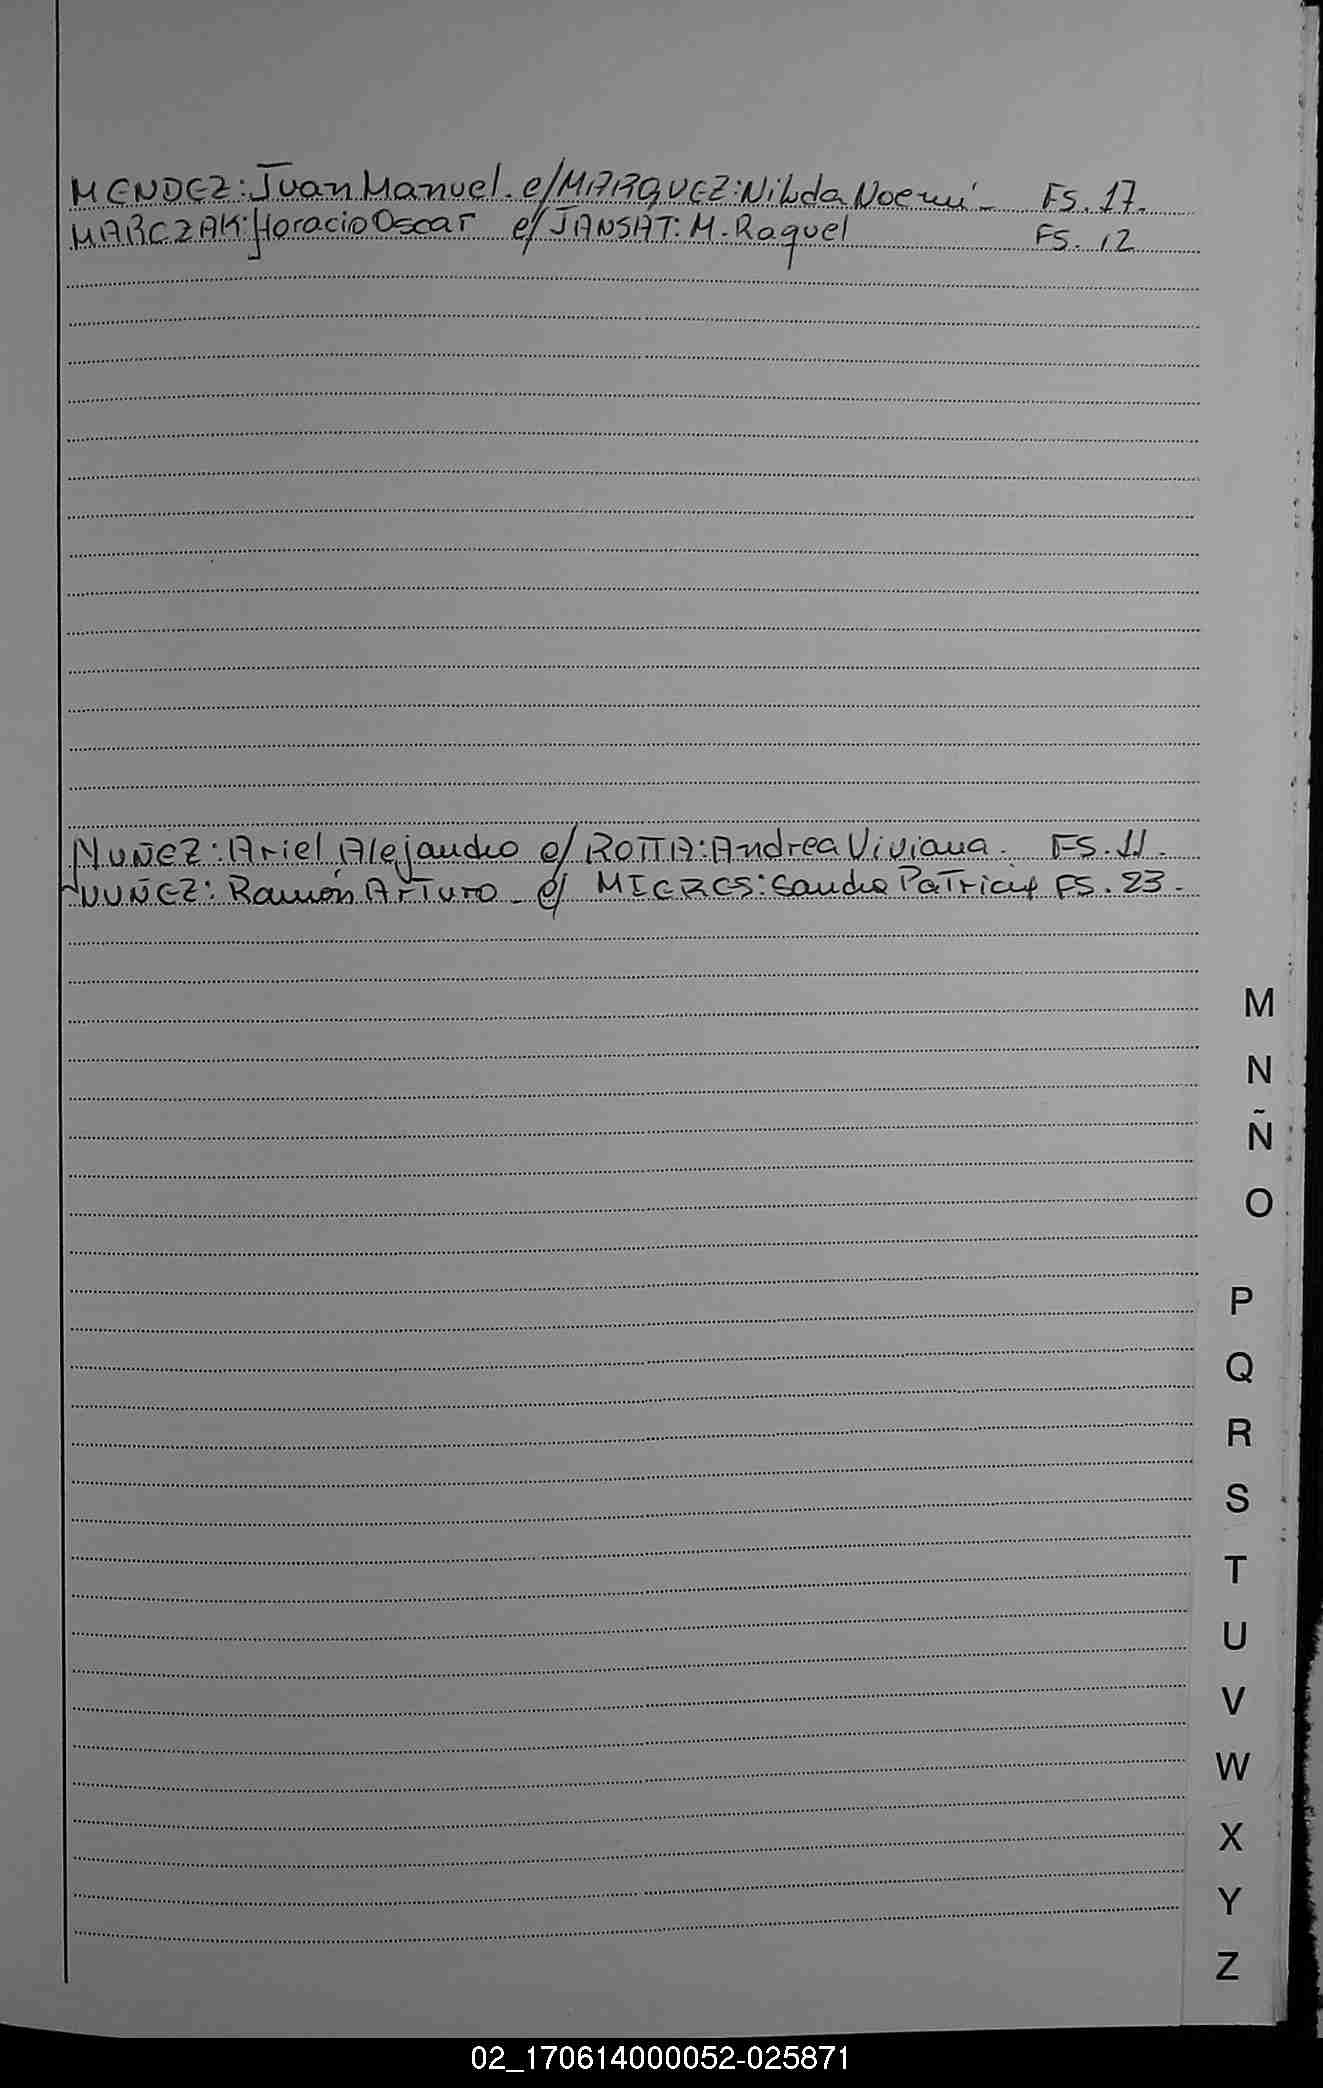 MENDEZ: Juan Manuel. e/ MARQUEZ: Nilda Noemí - FS. 17.
MARCZAK: Horacio Oscar e/ JANSAT: M. Raquel FS. 12
NUÑEZ: Ariel Alejandro e/ ROTTA: Andrea Viviana. FS. 11.
NUÑEZ: Ramón Arturo - e/ MIERES: Sandra Patricia FS. 23.
M
N
Ñ
O
P
Q
R
S
T
U
V
W
X
Y
Z
02_170614000052-025871